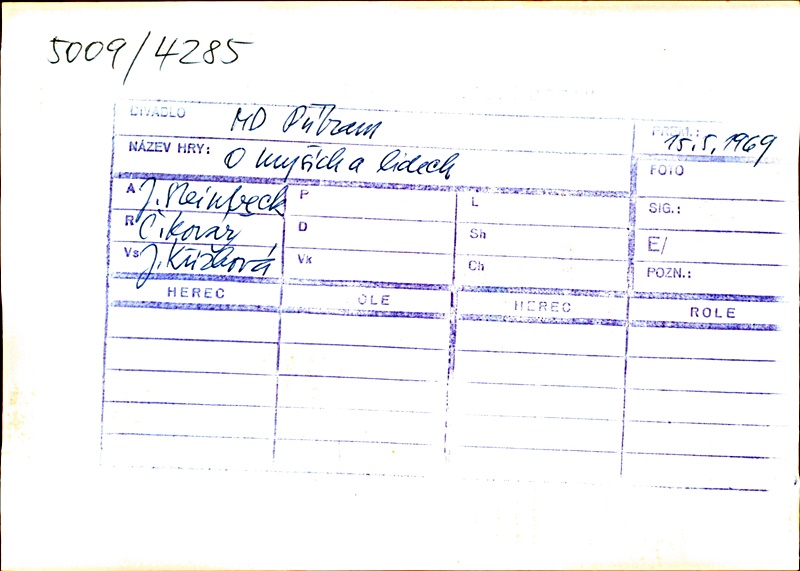 5009/4285
DIVADLO MD Příbram PREM.: 15.5.1969
NÁZEV HRY: O myších a lidech FOTO
A J. Steinbeck P L SIG.:
R Č. Kovář D Sh E/
Vs J. Křížková Vk Ch POZN.:
HEREC OLE HEREC ROLE